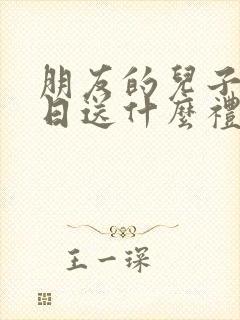 朋友的兒子
日送什麼禮
王一琛